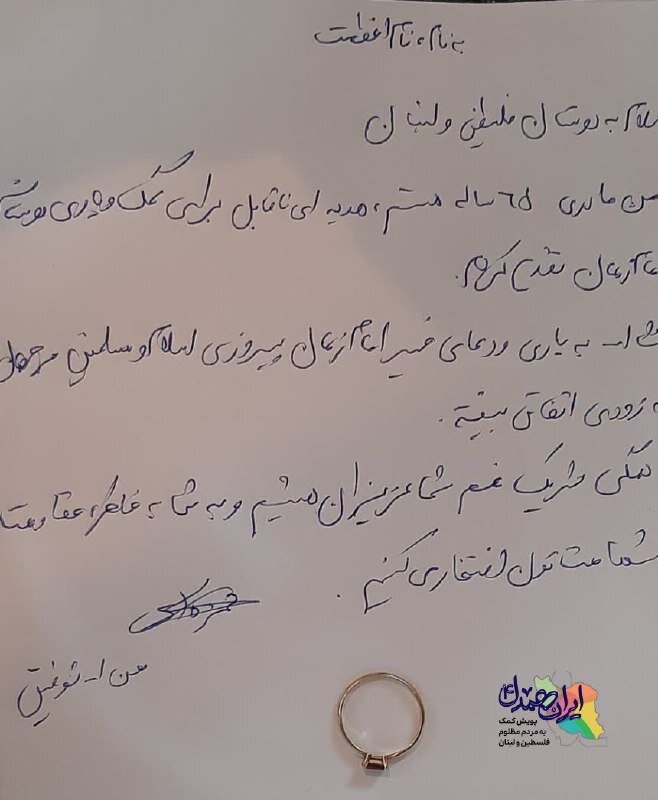 به نام، نام اعظمت
سلام به دوستان فلسطین و لبنان
من مادری ۶۵ ساله هستم، هدیه ای ناقابل برای کمک و یاری دوستان
امام زمان تقدیم کردم.
به یاری و دعای خیر امام زمان پیروزی اسلام و مسلمین
زودی اتفاق بیفته.
همگی شریک غم شما عزیزان هستیم و به شما به خاطر مقاومت
شجاعت تون افتخار می کنیم.
من ا... توفیق
ایران همدل
پویش کمک
به مردم مظلوم
فلسطین و لبنان